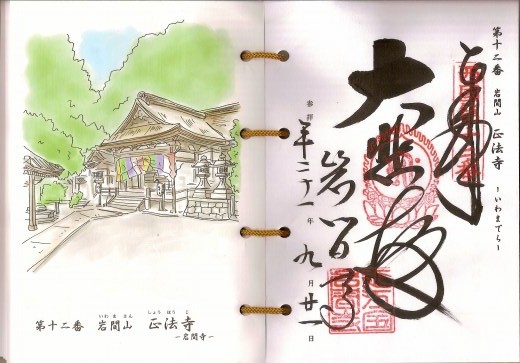 第十二番 岩間山 正法寺 ーいわまでらー
大悲殿
岩間寺
参拝 平二十一年九月廿一日
いわ ま さん しょう ほう じ
第十二番 岩間山 正法寺
ー岩間寺ー